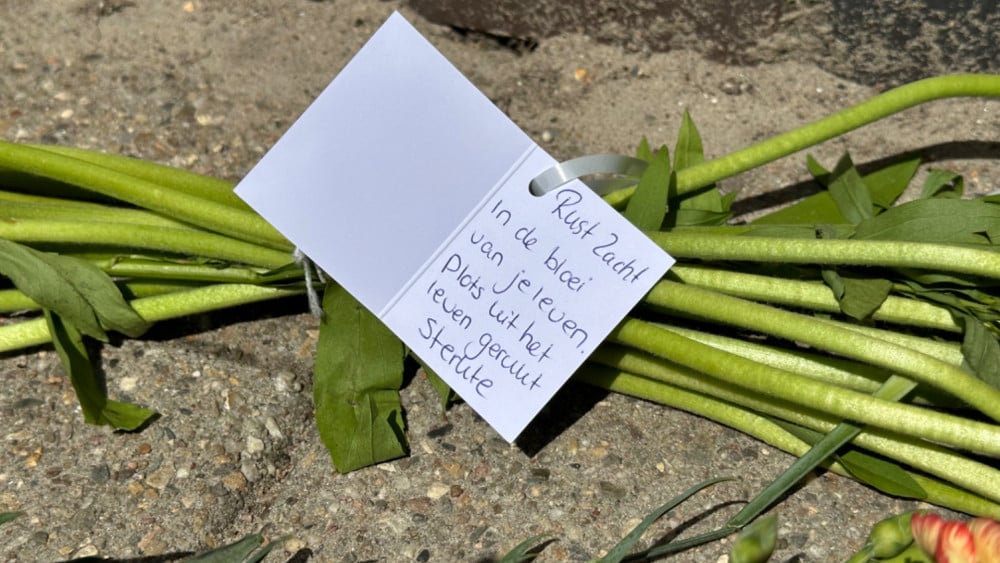 Rust Zacht
In de bloei
van je leven.
Plots uit het
leven gerukt
Sterkte